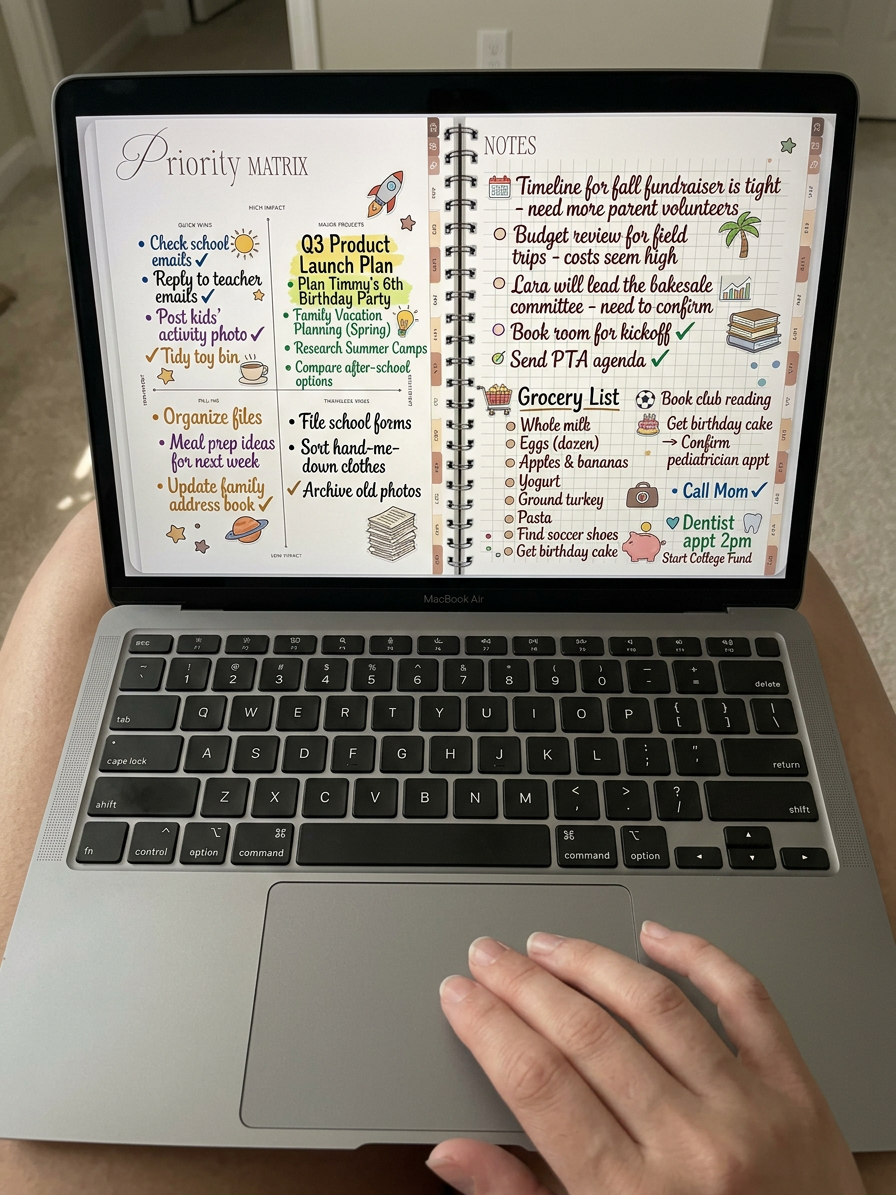 Priority MATRIX
HIGH IMPACT
QUICK WINS
• Check school
emails ✓
• Reply to teacher
emails ✓
• Post kids'
activity photo ✓
✓ Tidy toy bin
MAJOR PROJECTS
Q3 Product
Launch Plan
• Plan Timmy's 6th
Birthday Party
• Family Vacation
Planning (Spring)
• Research Summer Camps
• Compare after-school
options
• Organize files
• Meal prep ideas
for next week
• Update family
address book ✓
• File school forms
• Sort hand-me-
down clothes
✓ Archive old photos
NOTES
Timeline for fall fundraiser is tight
– need more parent volunteers
Budget review for field
trips – costs seem high
Lara will lead the bakesale
committee – need to confirm
Book room for kickoff ✓
Send PTA agenda ✓
Grocery List
Whole milk
Eggs (dozen)
Apples & bananas
Yogurt
Ground turkey
Pasta
Find soccer shoes
Get birthday cake
Book club reading
Get birthday cake
→ Confirm
pediatrician appt
• Call Mom ✓
Dentist
appt 2pm
Start College Fund
MacBook Air
~ ` ! 1 @ 2 # 3 $ 4 % 5 ^ 6 & 7 * 8 ( 9 ) 0 — - + = delete
tab Q W E R T Y U I O P { [ } ] | \
cape lock A S D F G H J K L : ; " ' return
ahift Z X C V B N M < , > . ? / shlft
fn control option command command option